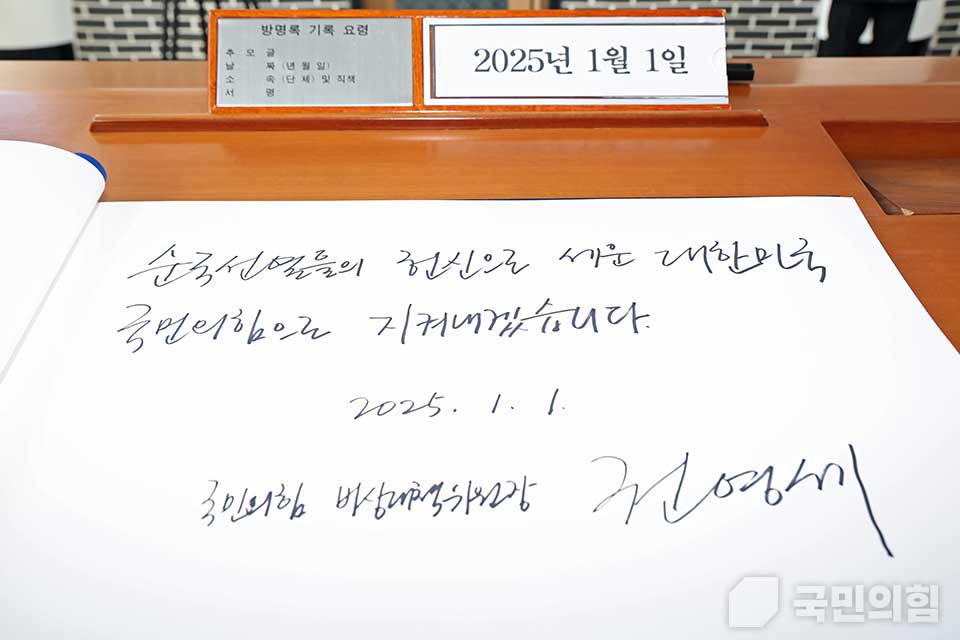 방명록 기록 요령
추 모 글
날 짜 (년 월 일)
소 속 (단 체) 및 직책
서 명
2025년 1월 1일
순국선열들의 헌신으로 세운 대한민국
국민의힘으로 지켜내겠습니다.
2025. 1. 1.
국민의힘 비상대책위원장 권영세
국민의힘